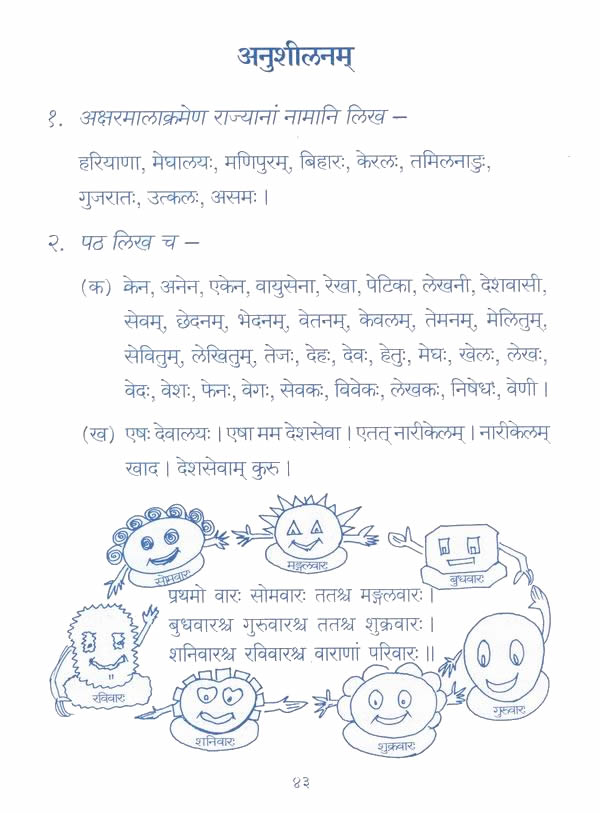 अनुशीलनम्
१. अक्षरमालाक्रमेण राज्यानां नामानि लिख –
हरियाणा, मेघालयः, मणिपुरम्, बिहारः, केरलः, तमिलनाडुः,
गुजरातः, उत्कलः, असमः ।
२. पठ लिख च –
(क) केन, अनेन, एकेन, वायुसेना, रेखा, पेटिका, लेखनी, देशवासी,
सेवम्, छेदनम्, भेदनम्, वेतनम्, केवलम्, तेमनम्, मेलितुम्,
सेवितुम्, लेखितुम्, तेजः, देहः, देवः, हेतुः, मेघः, खेलः, लेखः,
वेदः, वेशः, फेनः, वेगः, सेवकः, विवेकः, लेखकः, निषेधः, वेणी ।
(ख) एषः देवालयः । एषा मम देशसेवा । एतत् नारीकेलम् । नारीकेलम्
खाद । देशसेवाम् कुरु ।
सोमवारः
मङ्गलवारः
बुधवारः
प्रथमो वारः सोमवारः ततश्च मङ्गलवारः ।
बुधवारश्च गुरुवारश्च ततश्च शुक्रवारः ।
शनिवारश्च रविवारश्च वाराणां परिवारः ॥
रविवारः
शनिवारः
शुक्रवारः
गुरुवारः
४३